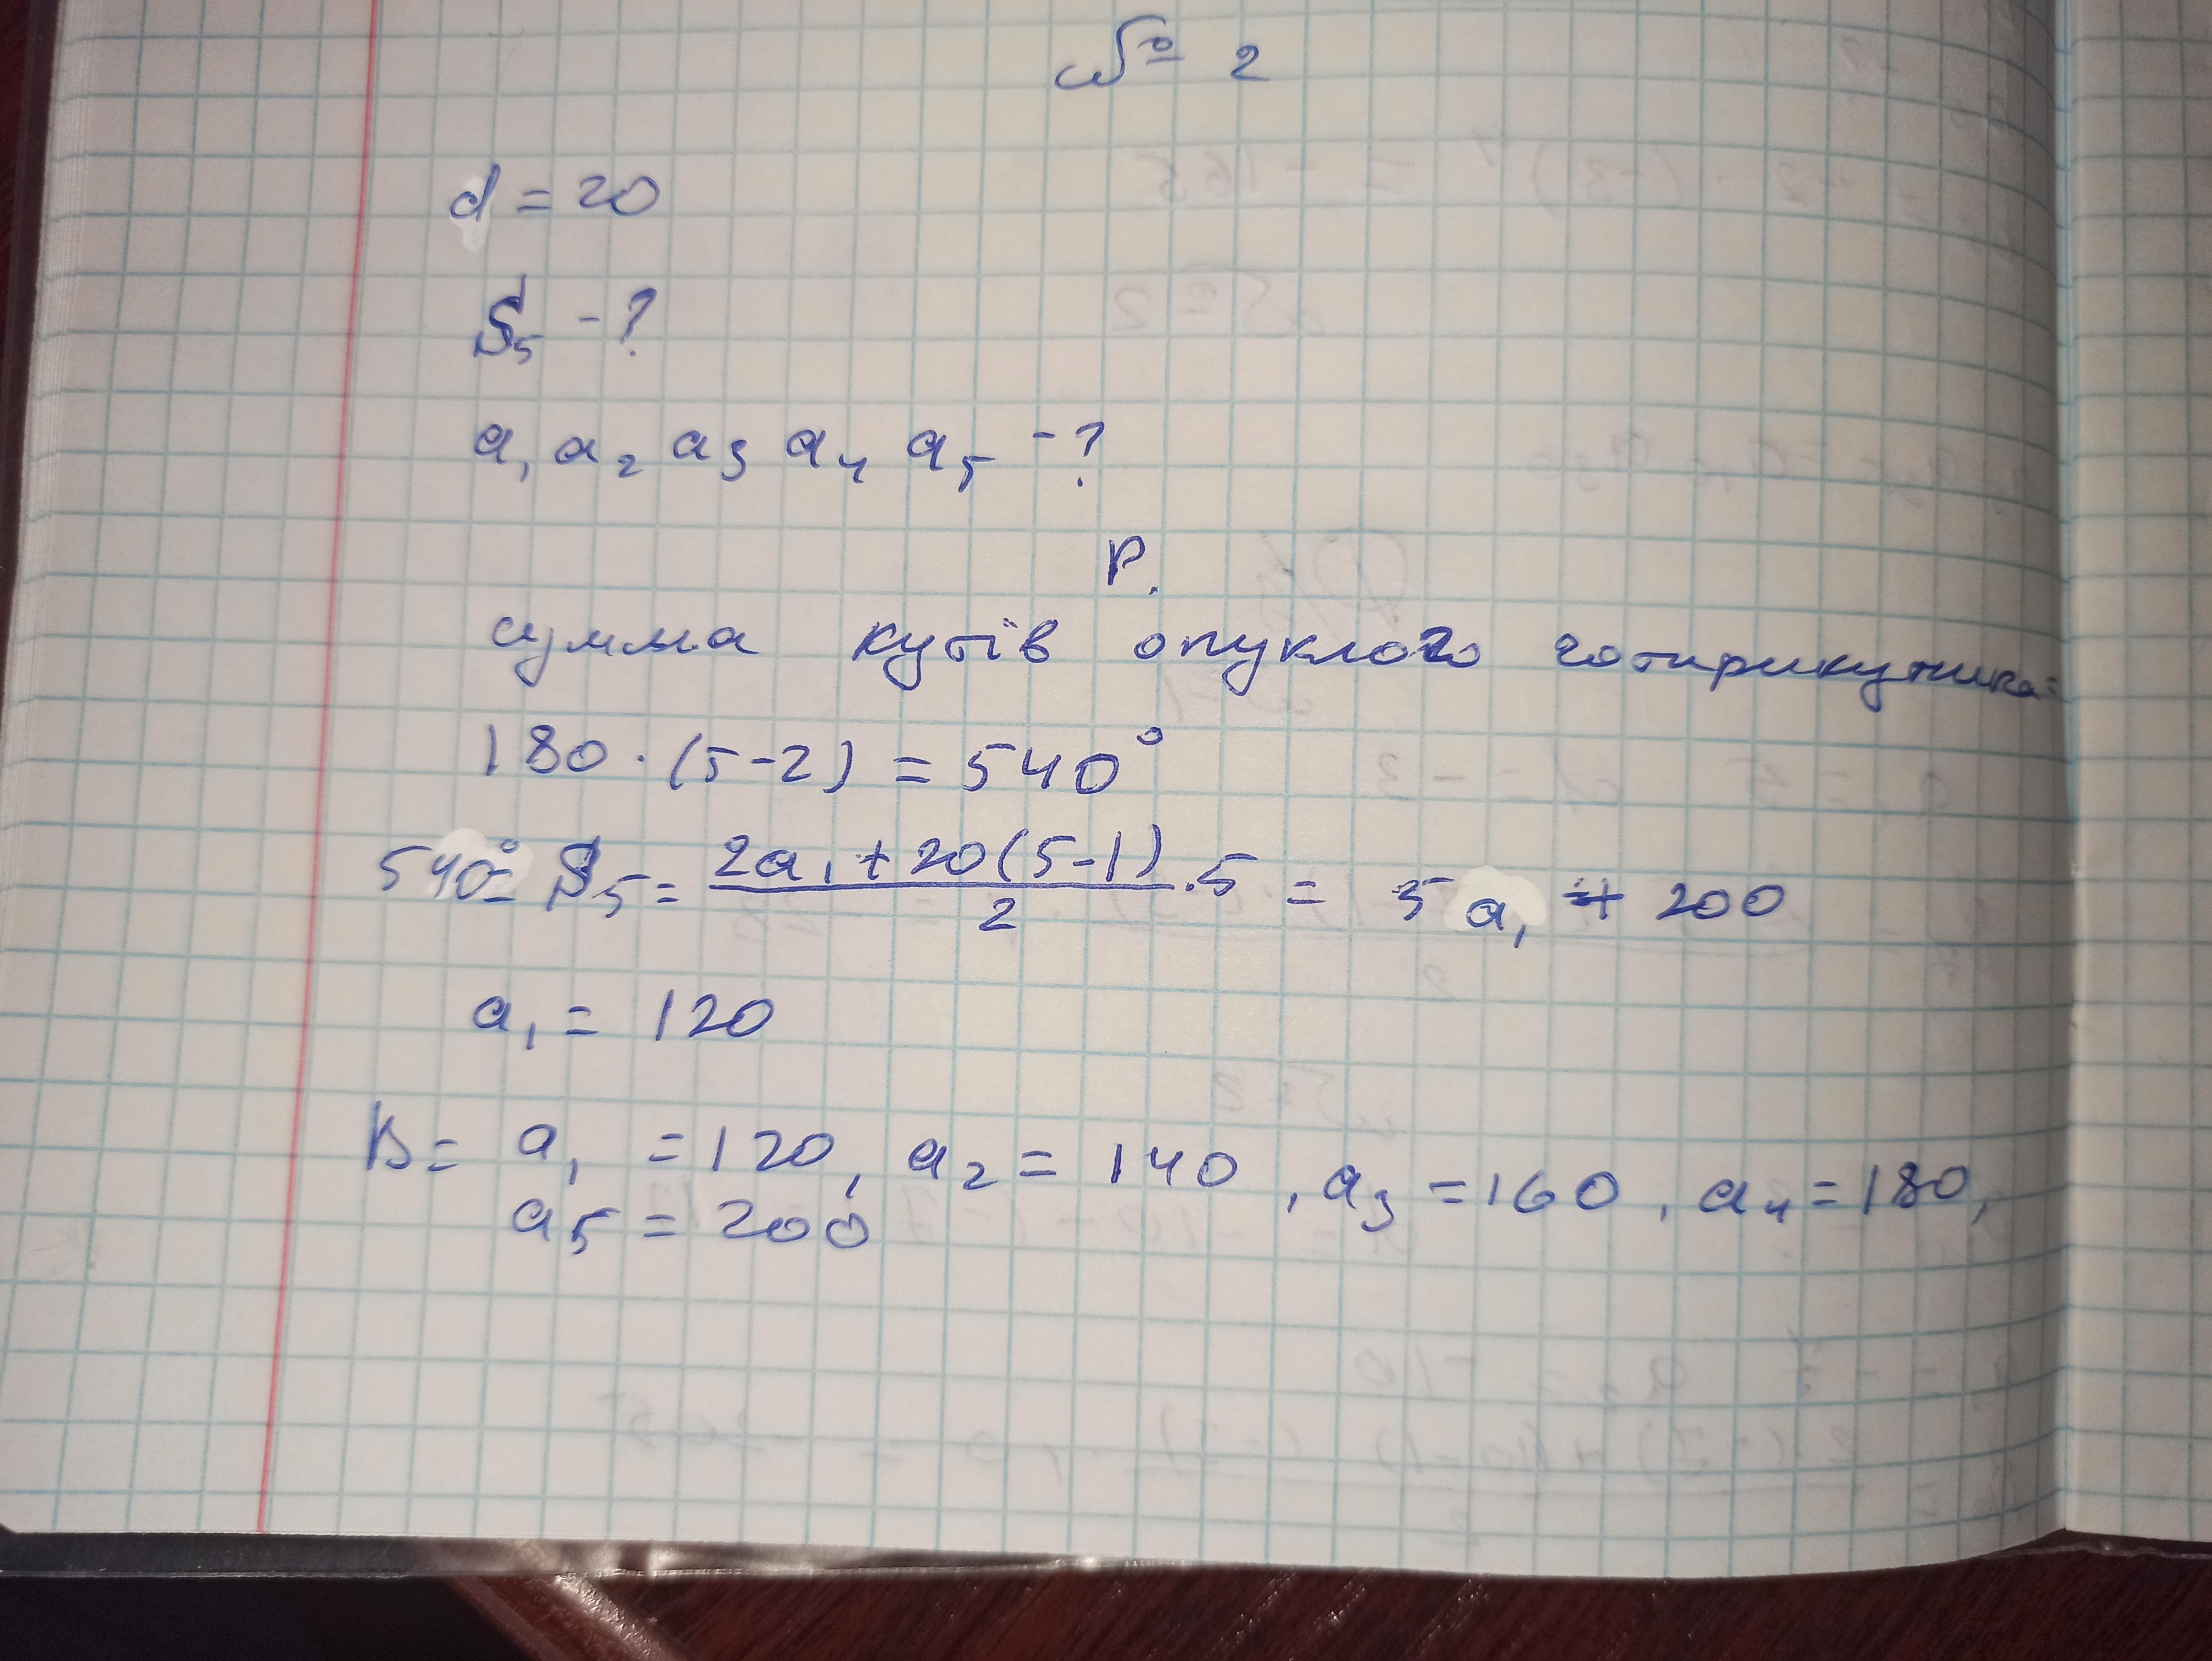 № 2
d = 20
S₅ - ?
a₁ a₂ a₃ a₄ a₅ - ?
Р.
сумма кутів опуклого чотирикутника =
180 · (5-2) = 540°
540° = S₅ = (2a₁ + 20(5-1))/2 · 5 = 5a₁ + 200
a₁ = 120
В = a₁ = 120, a₂ = 140, a₃ = 160, a₄ = 180,
a₅ = 200